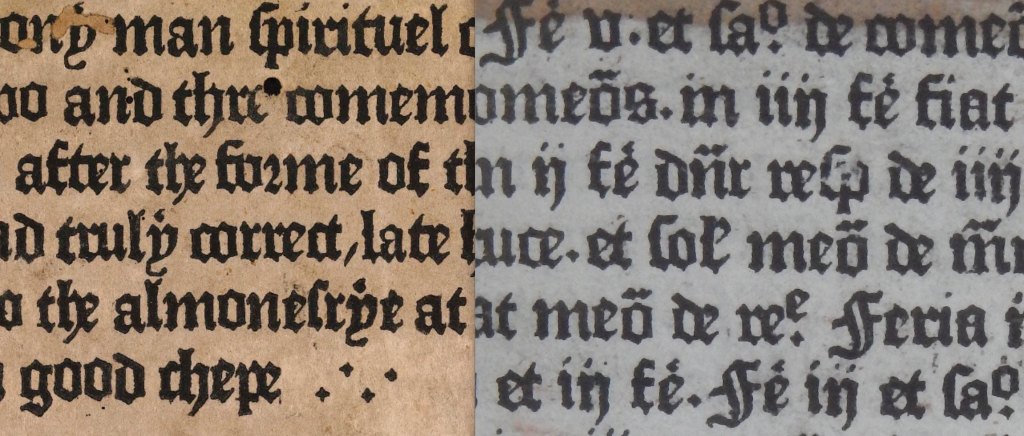 ony man spirituel
oo and thre comem
after the forme of th
nd truly correct, late
o the almonesrye at
good chepe .·.·
Fe̍ v. et saº. de comeō
omeōs. in iiij fe̍ fiat
ij fe̍ dn̄r resp de iiij
uce. et sol meō de m̄
at meō de reᵉ. Feria
et iij fe̍. Fe̍ iij et saº.